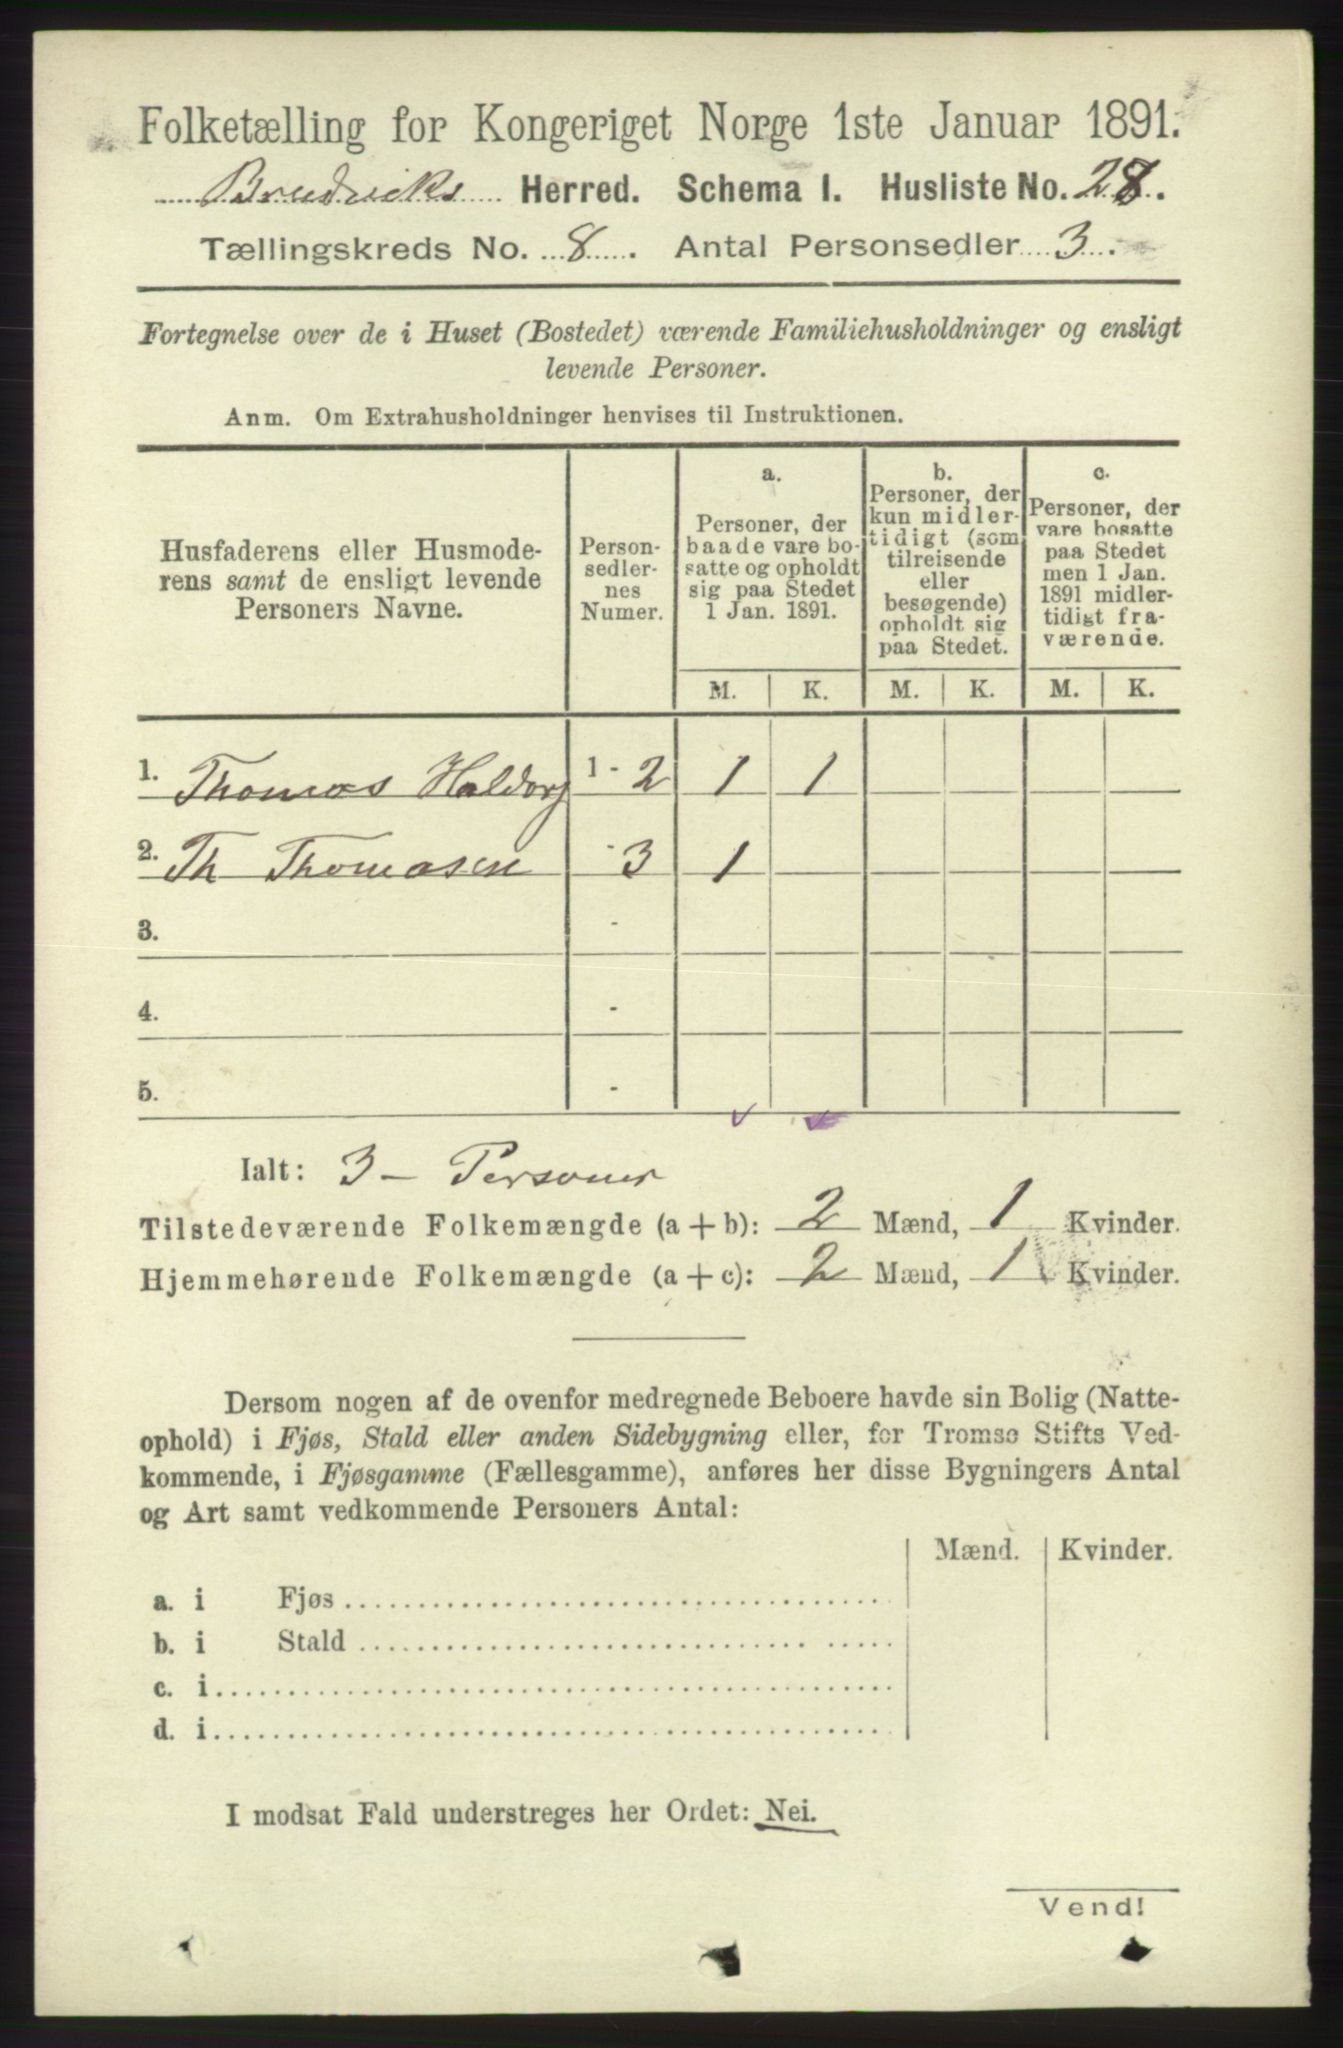 Folketælling for Kongeriget Norge 1ste Januar 1891.
Bruviks Herred. Schema I. Husliste No. 28.
Tællingskreds No. 8. Antal Personsedler 3.
Fortegnelse over de i Huset (Bostedet) værende Familiehusholdninger og ensligt
levende Personer.
Anm. Om Extrahusholdninger henvises til Instruktionen.
Husfaderens eller Husmode-
rens samt de ensligt levende
Personers Navne.
Person-
sedler-
nes
Numer.
a.
Personer, der
baade vare bo-
satte og opholdt
sig paa Stedet
1 Jan. 1891.
b.
Personer, der
kun midler-
tidigt (som
tilreisende
eller
besøgende)
opholdt sig
paa Stedet.
c.
Personer, der
vare bosatte
paa Stedet
men 1 Jan.
1891 midler-
tidigt fra-
værende.
M. K. M. K. M. K.
1. Thomas Haldors 1 - 2 1 1
2. Th Thomasen - 3 1
3. -
4. -
5. -
Ialt: 3 - Personer
Tilstedeværende Folkemængde (a + b): 2 Mænd, 1 Kvinder.
Hjemmehørende Folkemængde (a + c): 2 Mænd, 1 Kvinder.
Dersom nogen af de ovenfor medregnede Beboere havde sin Bolig (Natte-
ophold) i Fjøs, Stald eller anden Sidebygning eller, for Tromsø Stifts Ved-
kommende, i Fjøsgamme (Fællesgamme), anføres her disse Bygningers Antal
og Art samt vedkommende Personers Antal:
Mænd. Kvinder.
a. i Fjøs
b. i Stald
c. i
d. i
I modsat Fald understreges her Ordet: Nei.
Vend!